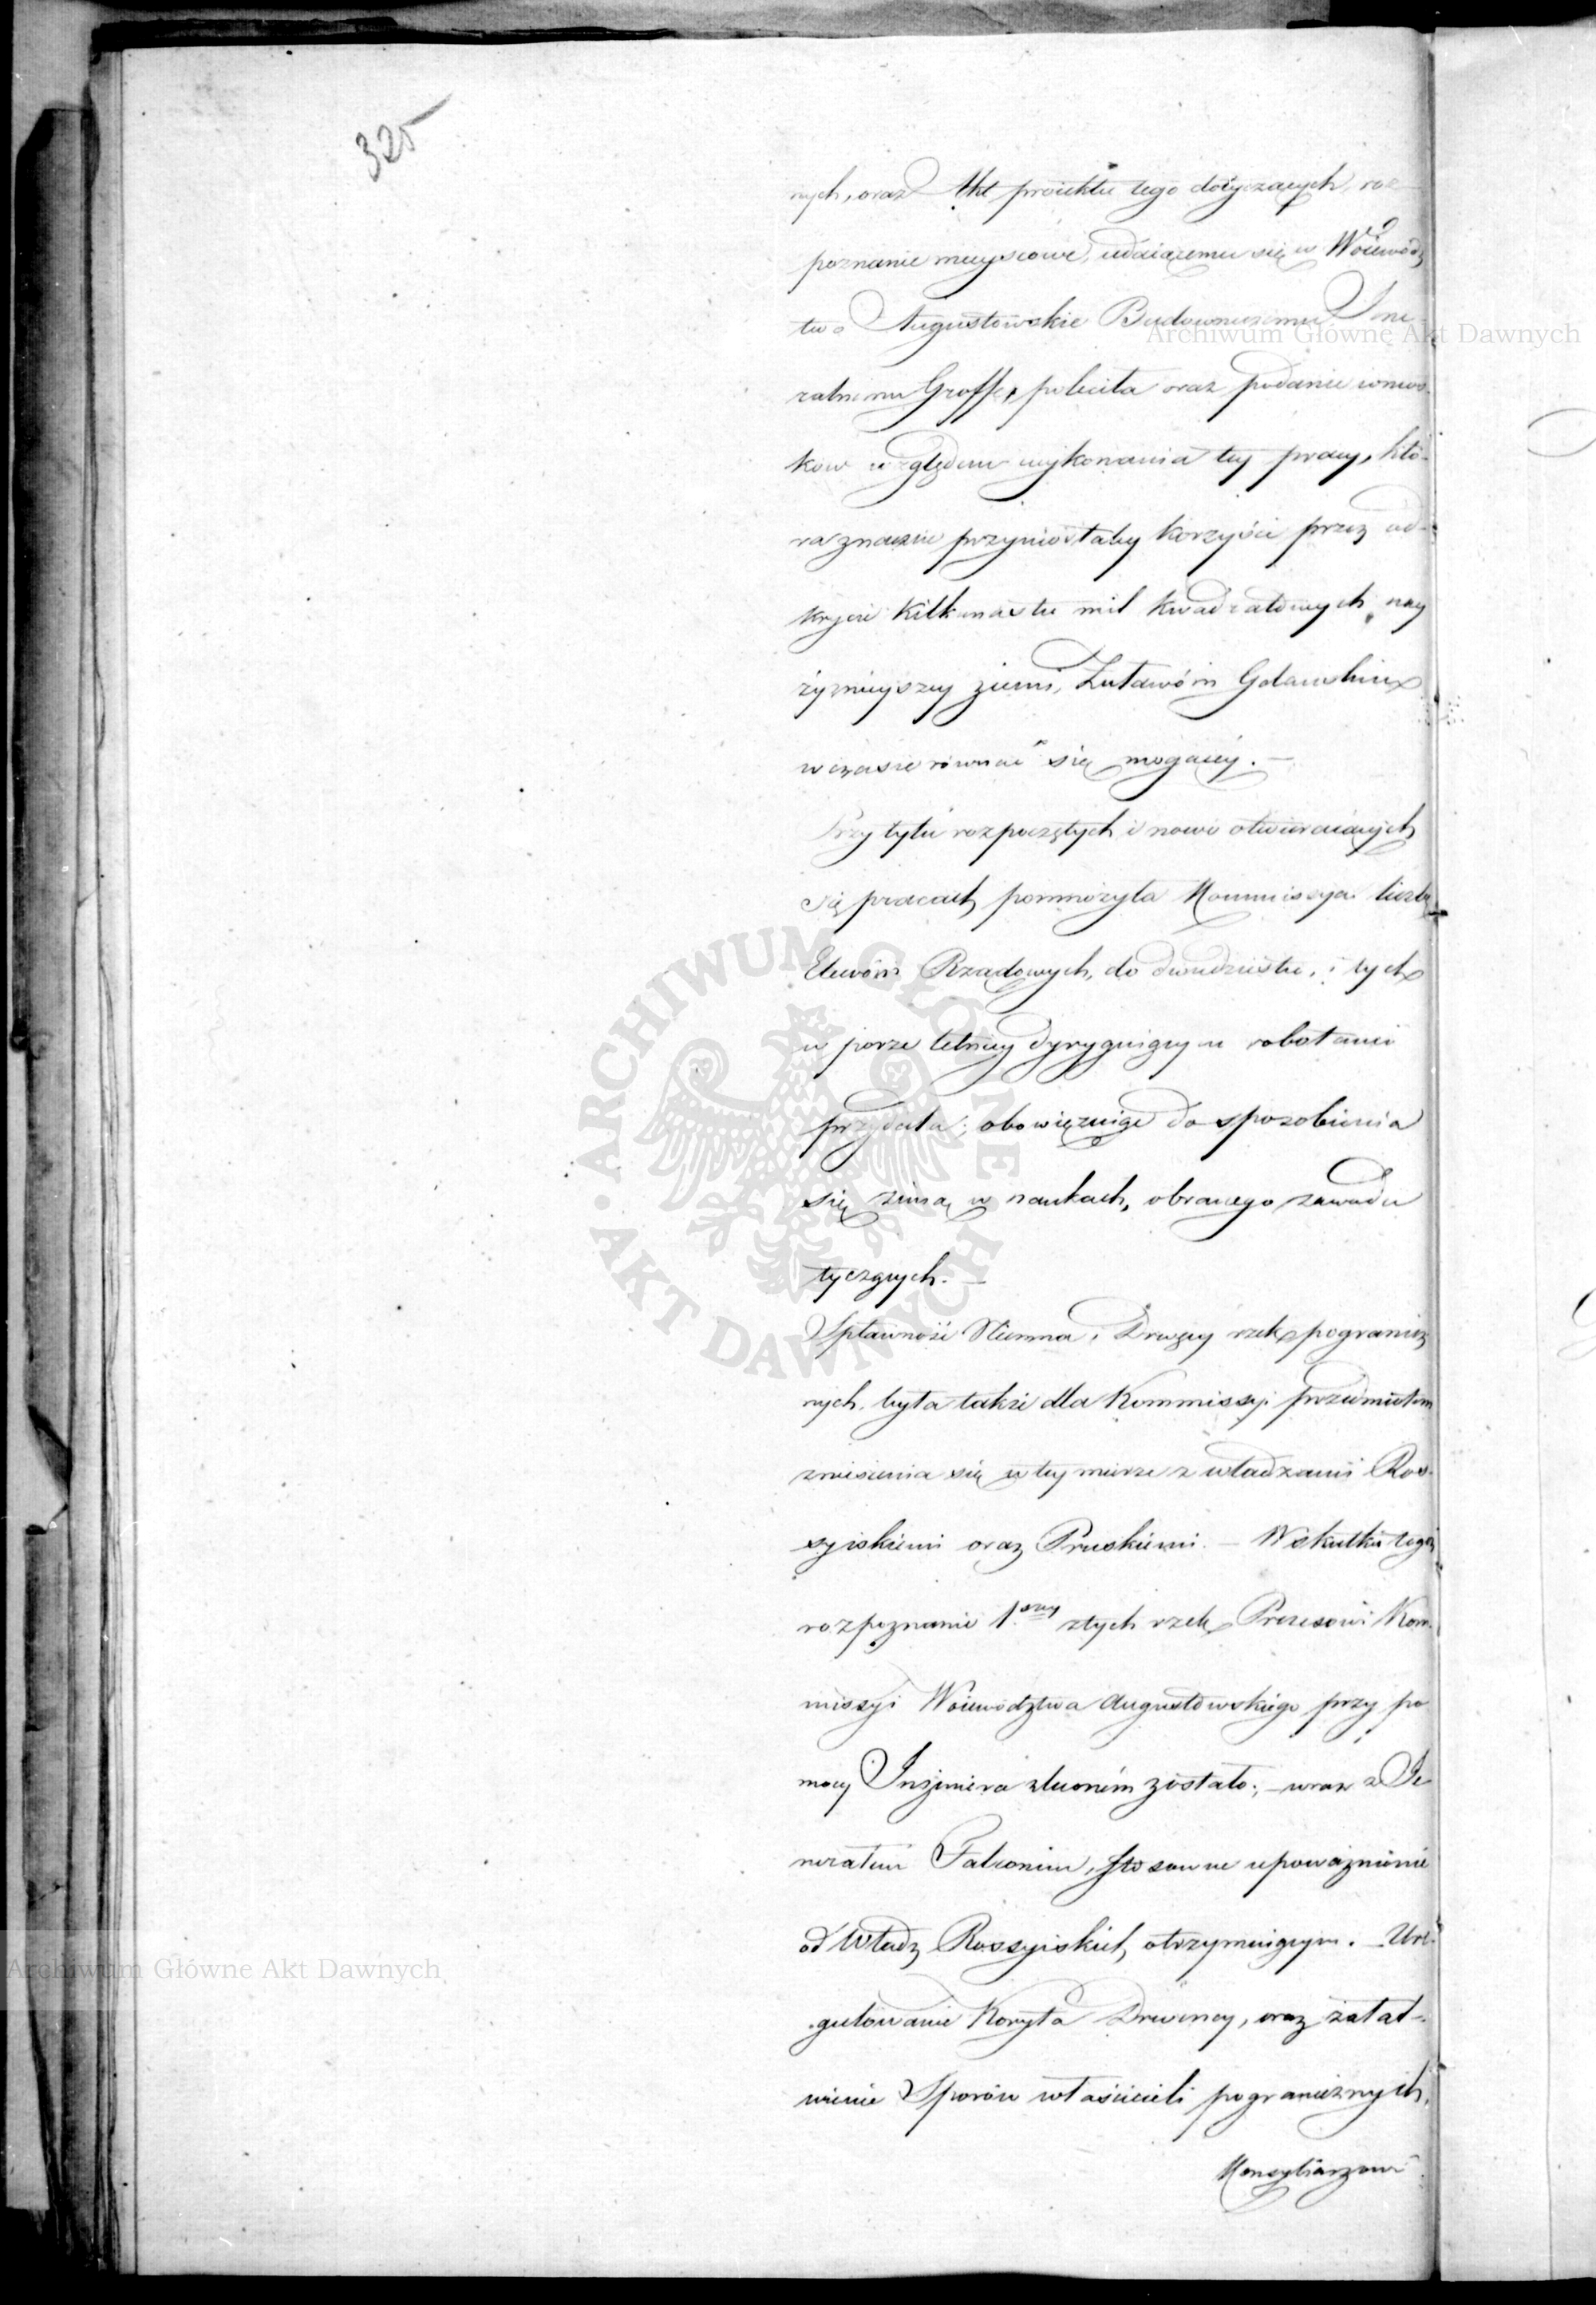 325
nych, oraz Akt proiektu tego dotyczących, roz-
poznanie mieyscowe, udaiącemu się w Woiewódz
two Augustowskie Budowniczemu Jene-
ralnemu Groffe, poleciła oraz podanie wnios-
ków względem wykonania tey pracy, któ-
ra znaczne przyniosłaby korzyści przez od-
krycie kilkunastu mil kwadratowych nay
żyznieyszey ziemi, Żuławóm Gdańskim
w czasie równać się mogącey. —
Przy tylu rozpoczętych i nowo otwieraiących
się pracach pomnożyła Kommissya liczbę
Elewów Rządowych, do dwudziestu, i tych
w porze letniey dyryguiącym robotami
przydała; obowiązuiąc do sposobienia
się zimą w naukach, obranego zawodu
tyczących. —
Spławność Niemna i Drwęcy rzek pogranicz
nych, była także dla Kommissyi przedmiotem
zniesienia się w tey mierze z władzami Ros-
syiskiemi oraz Pruskiemi. — W skutku tego
rozpoznanie 1.szey z tych rzek Prezesowi Kom-
missyi Woiewództwa Augustowskiego przy po
mocy Inżyniera zleconém zostało; — wraz z Je
nerałem Falconim, stosowne upoważnienie
od Władz Rossyiskich otrzymuiącym. — Ure-
gulowanie Koryta Drwęcy, oraz załat-
wienie Sporów właścicieli pogranicznych,
Konsyliarzowi
Archiwum Główne Akt Dawnych
ARCHIWUM GŁÓWNE • AKT DAWNYCH •
Archiwum Główne Akt Dawnych